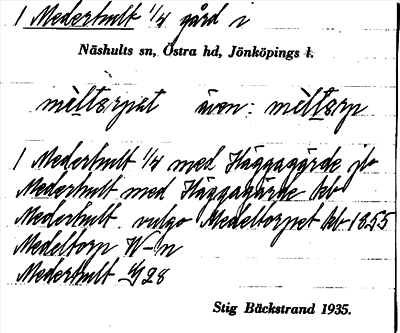 1 Mederhult 1/4 gård i
Näshults sn, Östra hd, Jönköpings l.
mèltorpet även: mèltorp
1 Mederhult 1/4 med Häggagärde jb
Mederhult med Häggagärde kb
Mederhult vulgo Medeltorpet kb 1855
Medeltorp W-n
Mederhult
Stig Bäckstrand 1935.